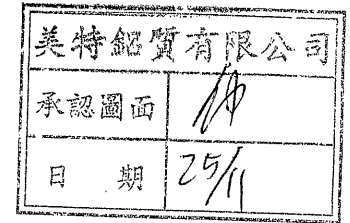 美特鋁質有限公司
承認圖面
日 期 25/11